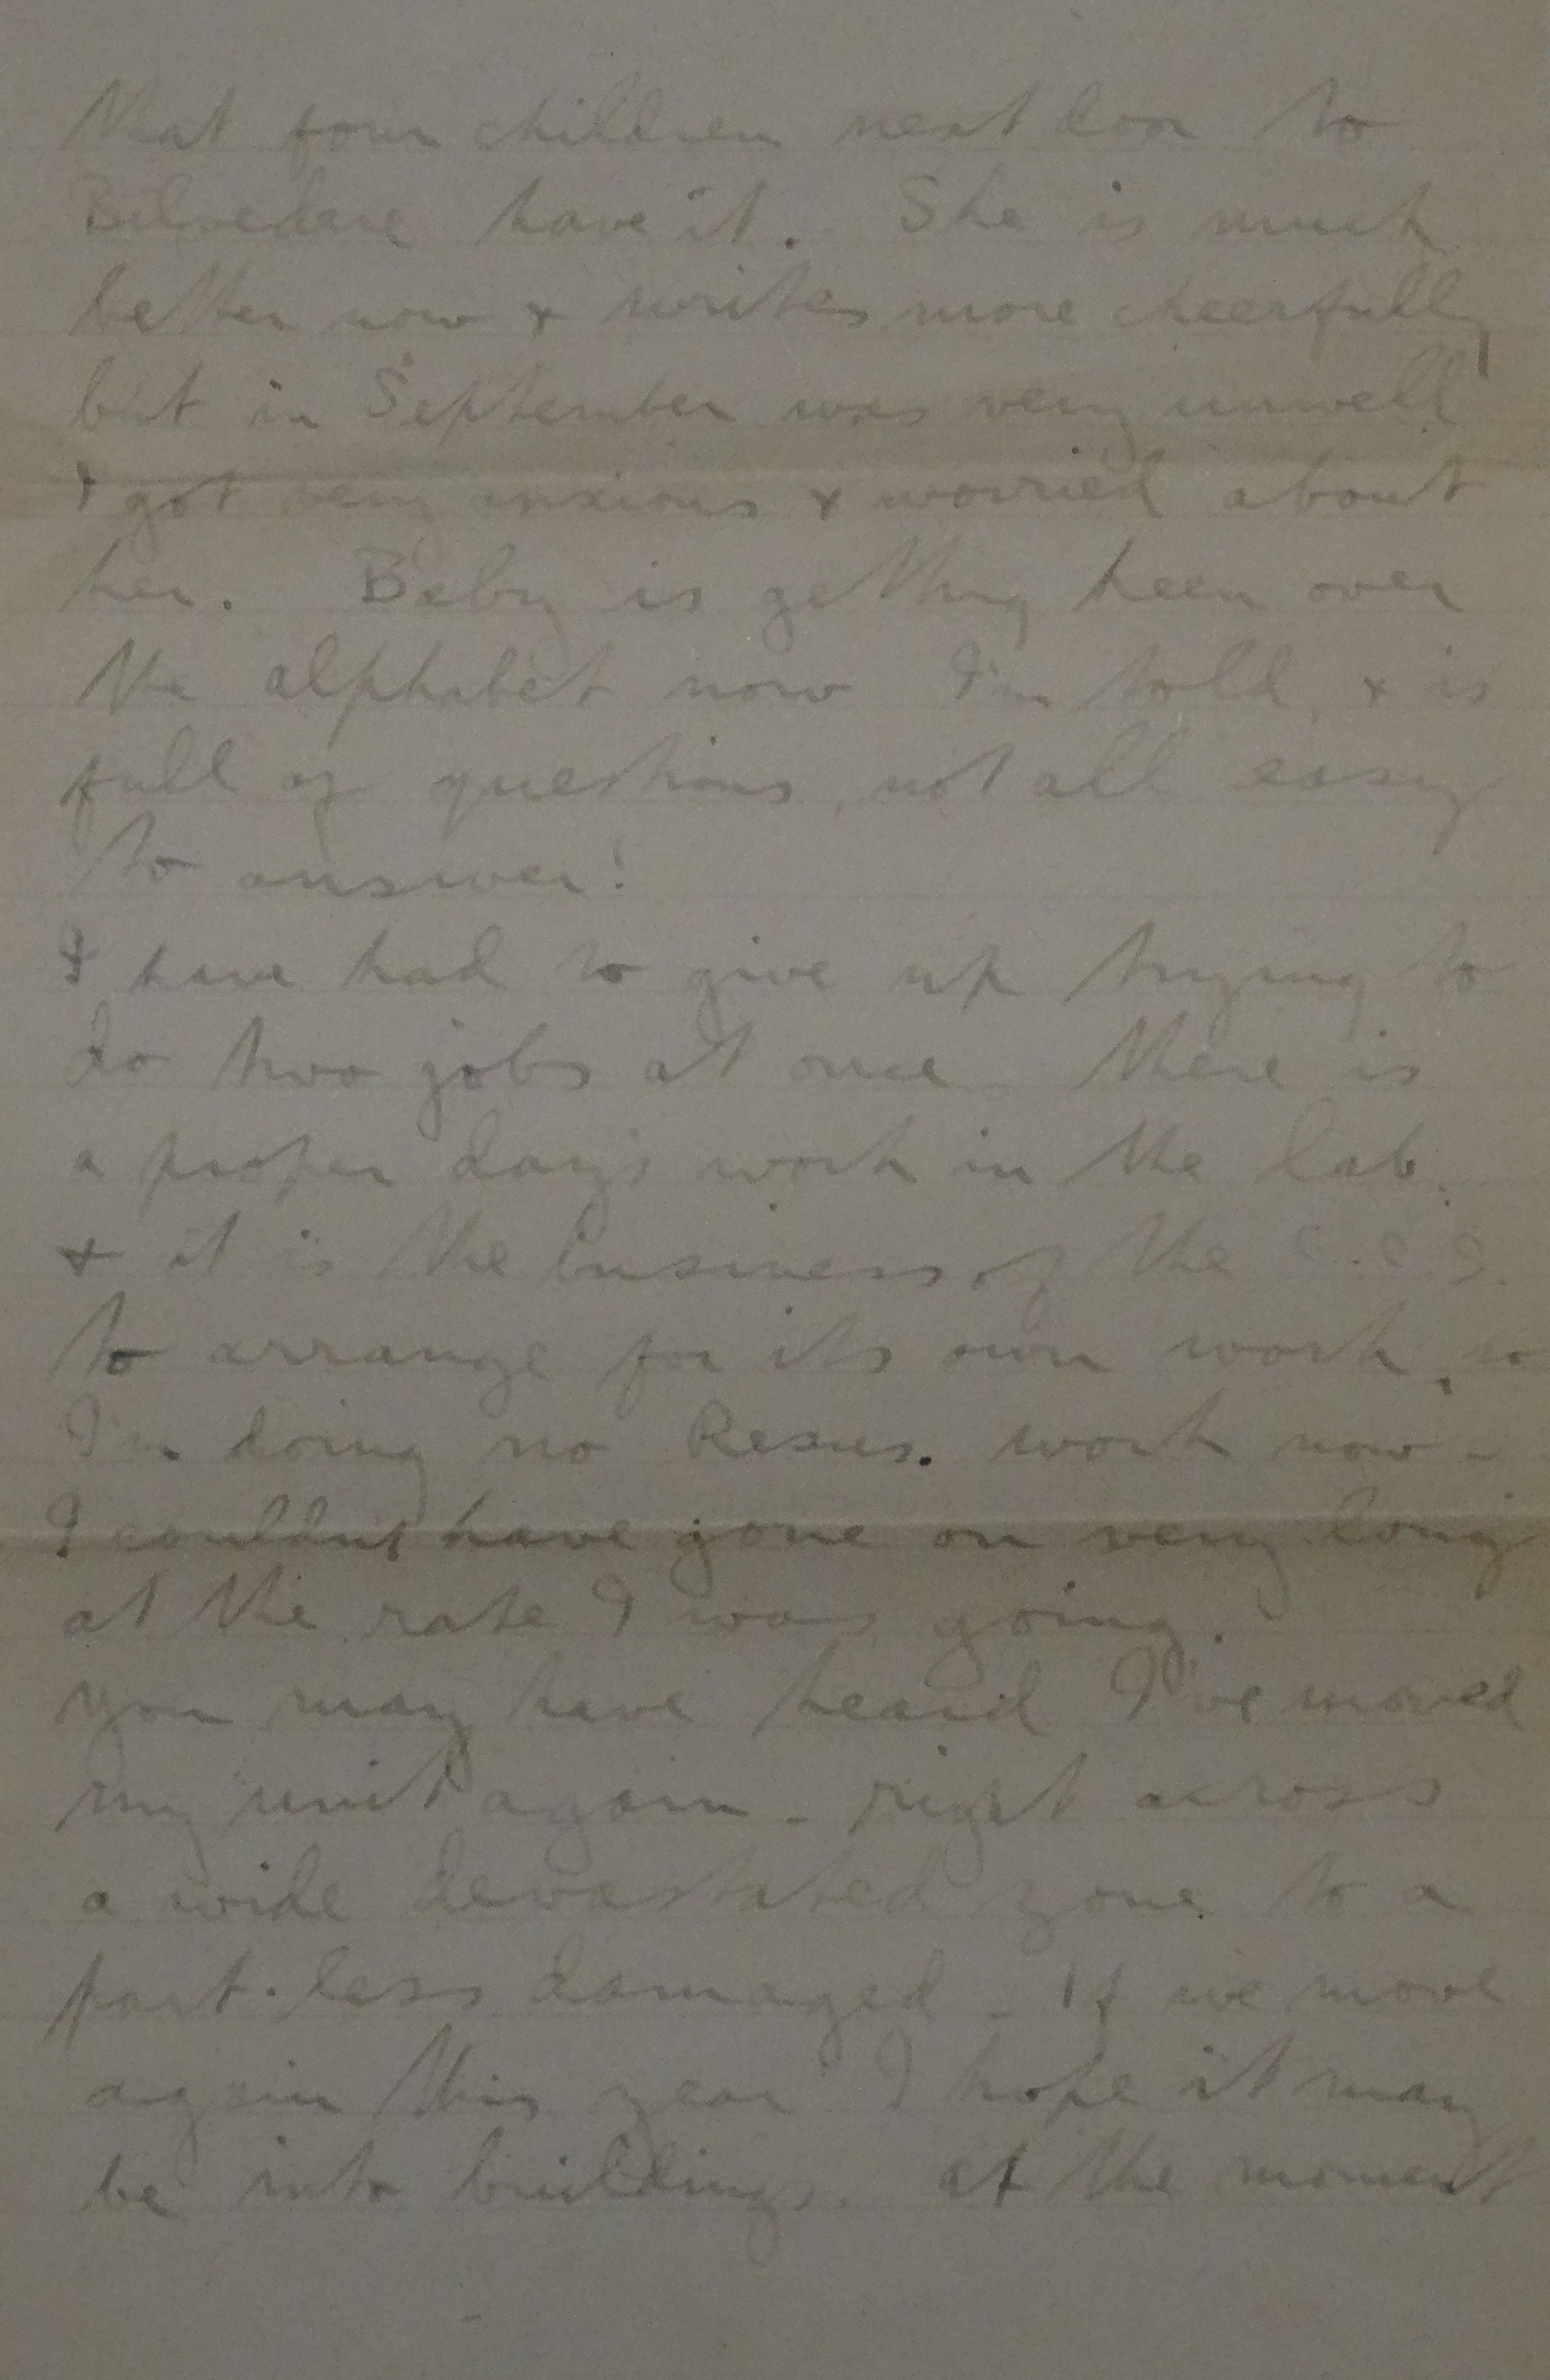 that four children next door to
Belvedere have it. She is much
better now & writes more cheerfully,
but in September was very unwell
& got very anxious & worried about
her. Baby is getting keen over
the alphabet now I'm told, & is
full of questions, not all easy
to answer!
I have had to give up trying to
do two jobs at once there is
a proper day's work in the lab.
& it is the business of the C.C.S.
to arrange for its own work, so
I'm doing no Resus. work now -
I couldn't have gone on very long
at the rate I was going.
You may have heard I've moved
my unit again - right across
a wide devastated zone to a
part less damaged - If we move
again this year I hope it may
be into buildings. At the moment